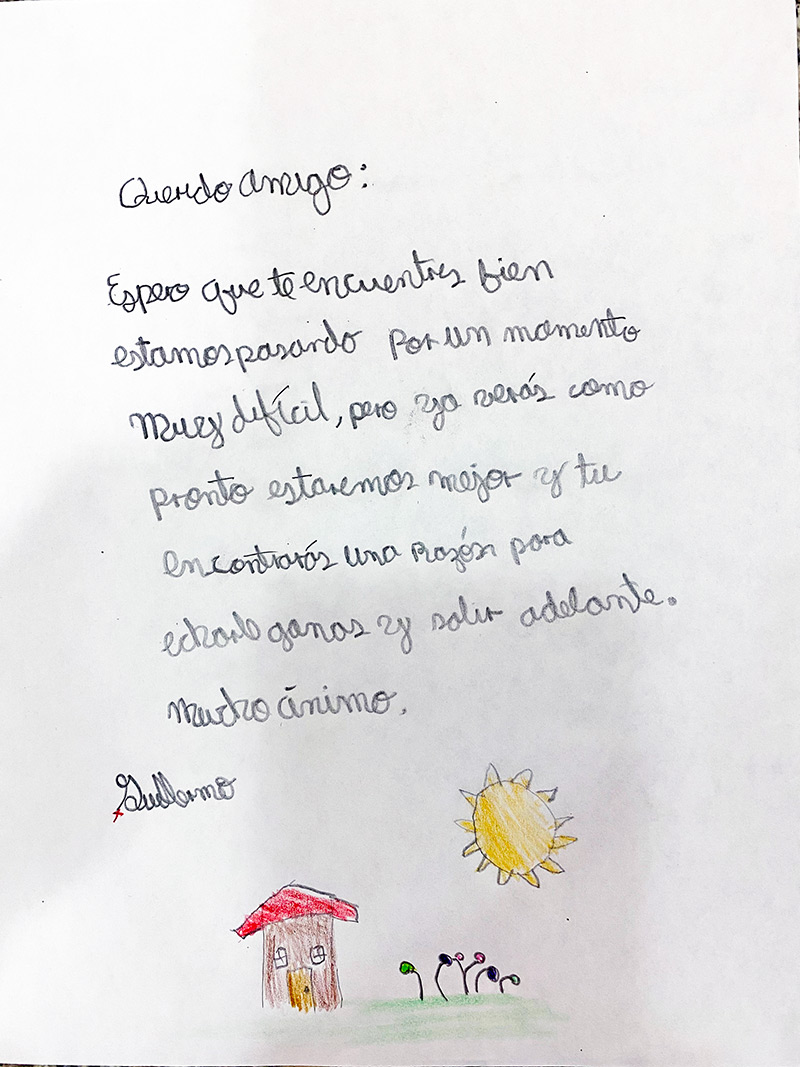 Querido amigo:
Espero que te encuentres bien
estamos pasando por un momento
muy difícil, pero ya verás como
pronto estaremos mejor y tu
encontrarás una razón para
echarle ganas y salir adelante.
Mucho ánimo.
Guillermo